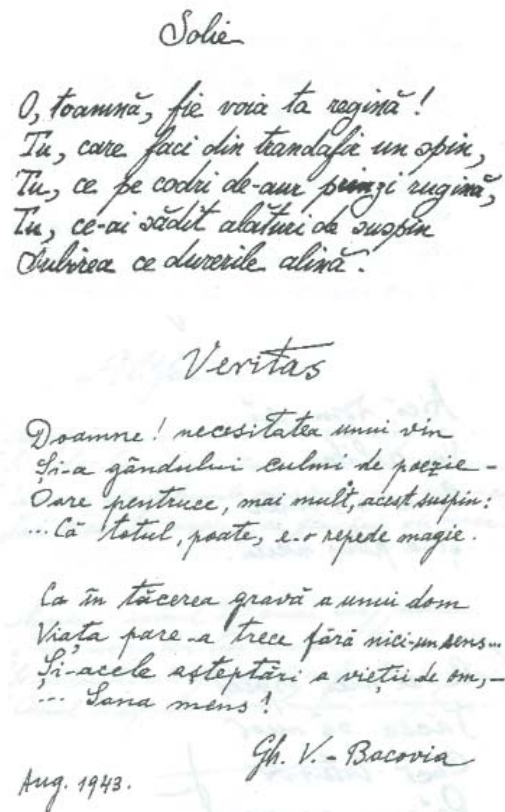 Solie
O, toamnă, fie voia ta regină!
Tu, care faci din trandafir un spin,
Tu, ce pe codri de-aur prinzi rugină,
Tu, ce-ai sădit alături de suspin
Iubirea ce durerile alină.
Veritas
Doamne! necesitatea unui vin
Și-a gândului culmi de poezie -
Oare pentruce, mai mult, acest suspin:
... Că totul, poate, e-o repede magie.
Ca în tăcerea gravă a unui dom
Viața pare-a trece fără nici-un sens...
Și-acele așteptări a vieții de om, -
... Sana mens!
Gh. V. - Bacovia
Aug. 1943.